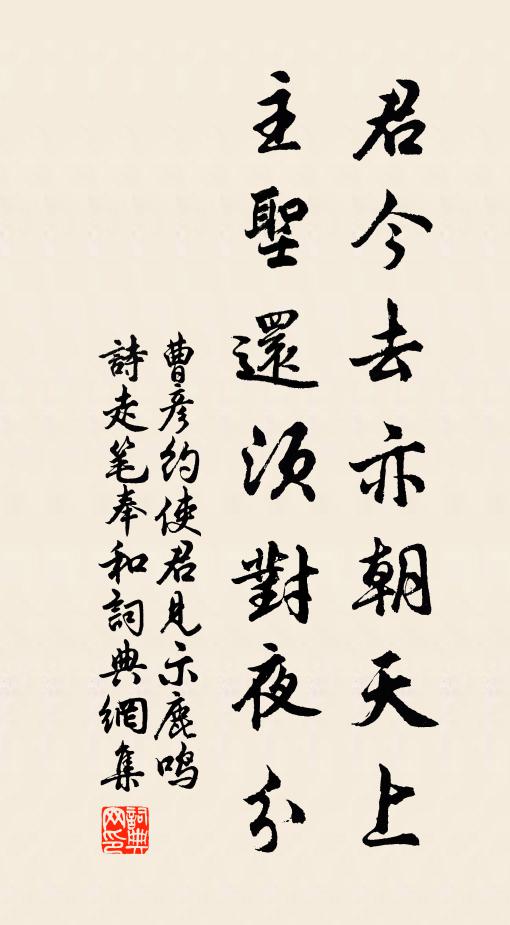 君今去亦朝天上
主聖還須對夜分
曹彦約使君見示鹿鸣
詩走笔奉和詞典網集
詞典
网印